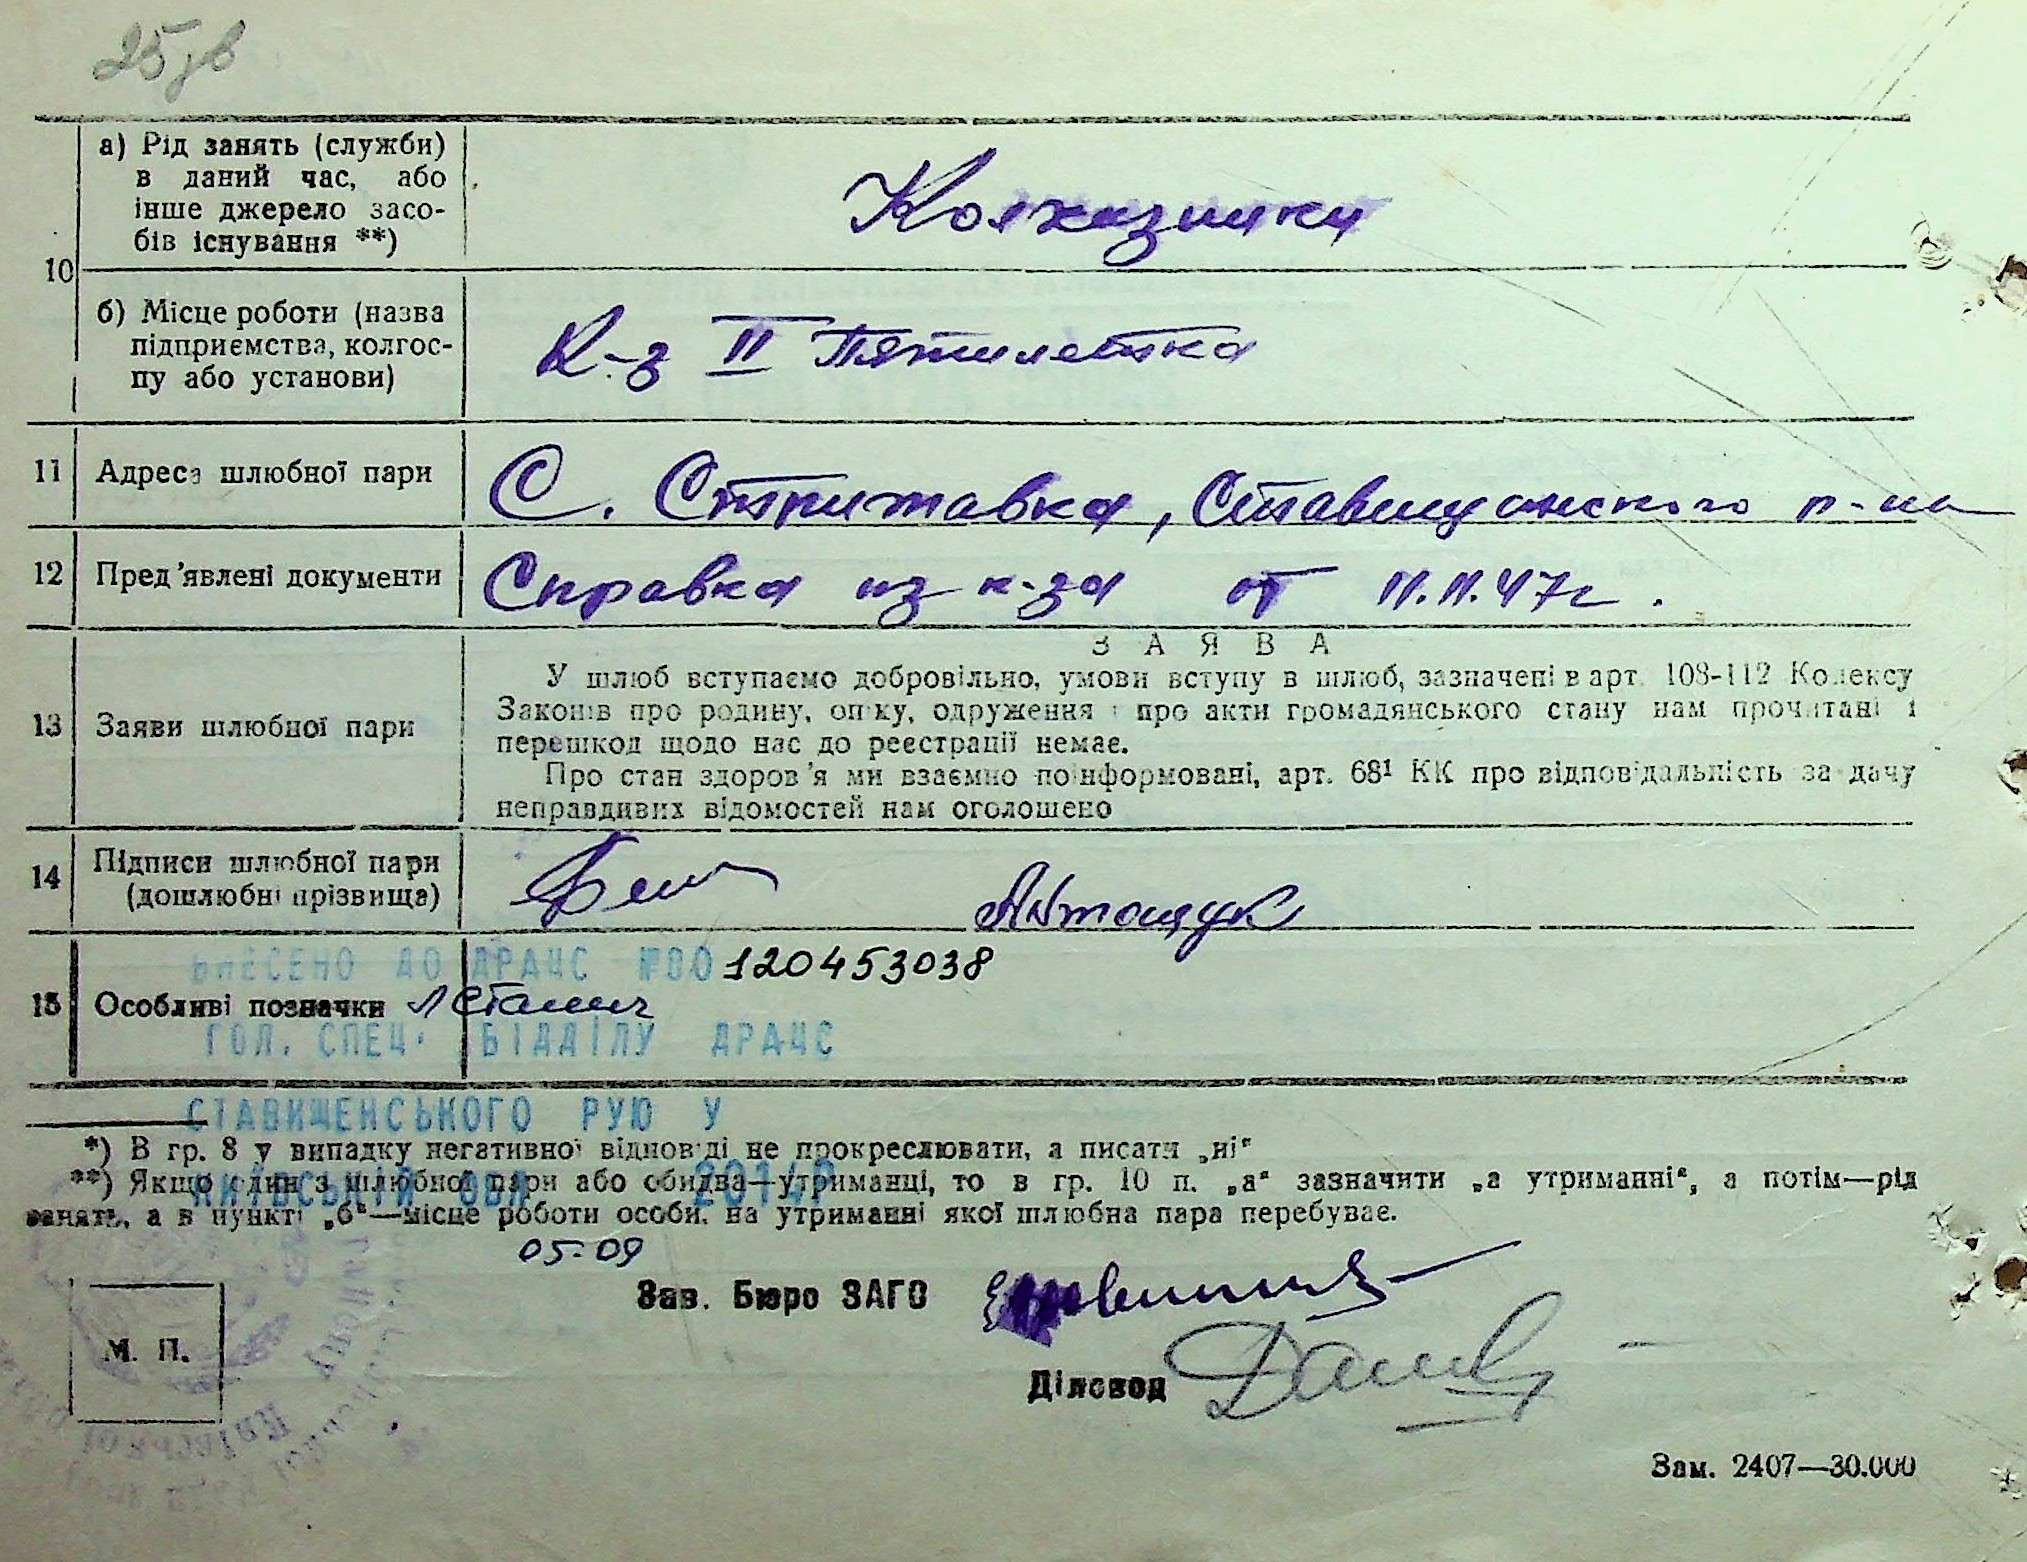 25
а) Рід занять (служби)
в даний час, або
інше джерело засо-
бів існування **)
Колхозники
10
б) Місце роботи (назва
підприємства, колгос-
пу або установи)
К-з II Пятилетка
11 Адреса шлюбної пари С. Стрижавка, Ставищанского р-на
12 Пред'явлені документи Справка из к-за от 11.11.47г.
З А Я В А
У шлюб вступаємо добровільно, умови вступу в шлюб, зазначені в арт. 108-112 Кодексу
Законів про родину, опіку, одруження і про акти громадянського стану нам прочитані і
перешкод щодо нас до реєстрації немає.
13 Заяви шлюбної пари
Про стан здоров'я ми взаємно поінформовані, арт. 68¹ КК про відповідальність за дачу
неправдивих відомостей нам оголошено
14 Підписи шлюбної пари
(дошлюбні прізвища)
ВНЕСЕНО ДО ДРАЦС №00120453038
15 Особливі позначки
ГОЛ. СПЕЦ. ВІДДІЛУ ДРАЦС
СТАВИЩЕНСЬКОГО РУЮ У
*) В гр. 8 у випадку негативної відповіді не прокреслювати, а писати „ні“
КИЇВСЬКІЙ ОБЛ 2014Р
**) Якщо один з шлюбної пари або обидва—утриманці, то в гр. 10 п. „а“ зазначити „а утриманні“, а потім—рід
занять, а в пункті „б“—місце роботи особи, на утриманні якої шлюбна пара перебуває.
05.09
Зав. Бюро ЗАГС
М. П.
Діловод
Зам. 2407—30.000